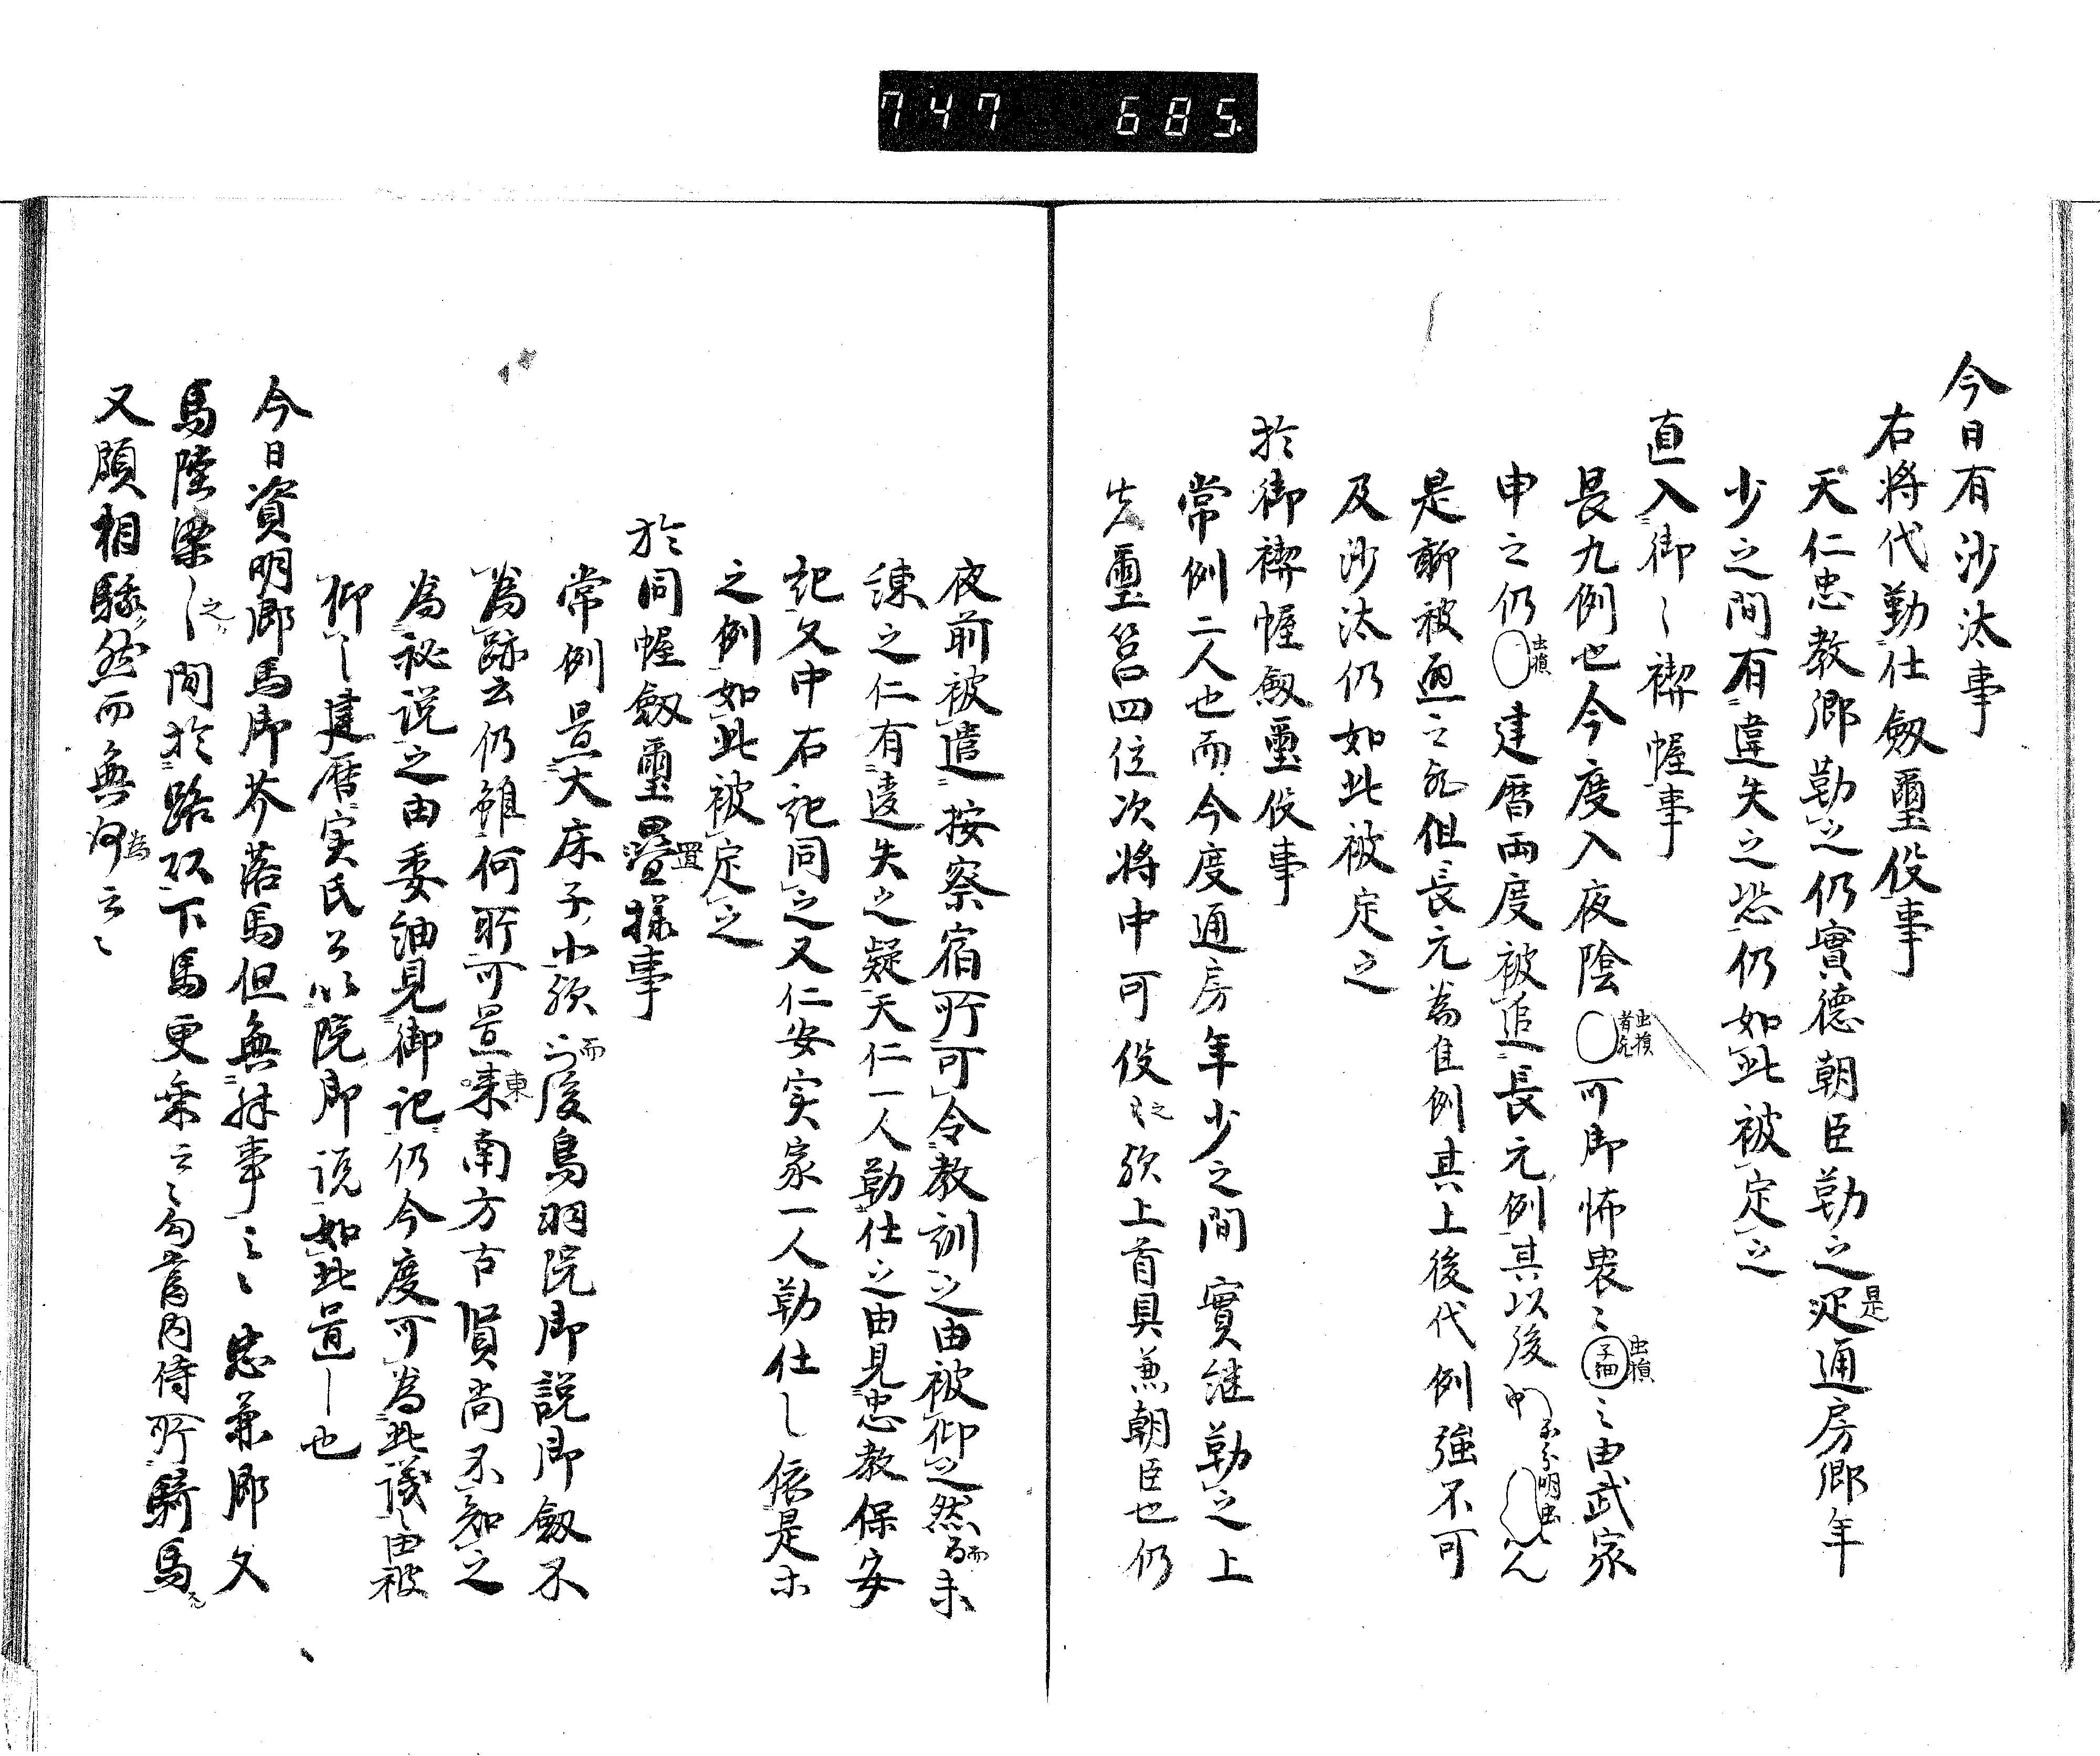 747 685
今日有沙汰事
右将代勤仕劔璽役事
天仁忠教卿勤之仍實德朝臣勤之是通房卿年
少之間有違失之恐仍如此被定之
直入御々禊幄事
長九例也今度入夜陰 可御怖畏々子細々由武家
虫損
虫損
申之仍 建暦両度被追長元例其以後
虫損
是聊被通之 但長元為佳例其上後代例強不可
及沙汰仍如此被定之
於御禊幄劔璽役事
常例二人也而今度通房年少之間實継勤之上
先璽筥四位次将中可役之 上首具兼朝臣也仍
夜前被遣按察宿所可令教訓之由被仰之然而未
練之仁有違失之疑天仁一人勤仕之由見忠教保安
記又中右記同之又仁安実家一人勤仕之依是等
之例如此被定之
於同幄劔璽置様事
常例置大床子 而後鳥羽院御説御劔不
為跡云仍雖何所可置東南方古賢尚不知之
為秘説之由委細見御記仍今度可為此議之由被
仰之建暦実氏公以院御説如此置之也
今日資明卿馬御 落馬但無殊事云々忠兼卿又
馬陸梁之間於路頭下馬更乗云々勾當内侍所騎馬
又頗相驂然而無為云々